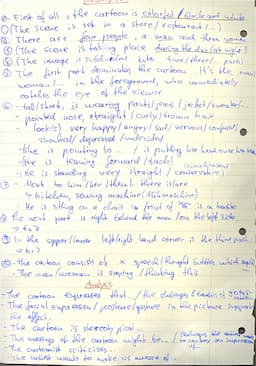 Description
0. First of all, the cartoon is colorful / black and white
① (The scene is set in a store / restaurant /...)
② There are four people, a man and three women
③ (The scene is taking place during the day (at night))
④ (The image is subdivided into two/three/... parts)
⑤ The first part dominates the cartoon. It's the man/
woman/... in the foreground who immediately
catches the eye of the viewer
⑥ - tall/short, is wearing pants/jeans/jacket/sweater/...
pointed nose, straight/curly/brown hair
look(s) very happy/angry/sad/nervous/confused/
shocked/depressed/
- She is pointing to .../ is putting her hand over
- He is leaning forward/(back)
- He is standing very straight/
⑦ - Next to him/her/them there is/are
→ kitchen, sewing machine/
- He is sitting on a chair in front of is a table
⑧ the next part is right behind the man/on the left side
→ 6 + 7
⑨ In the upper/lower left/right hand corner is the third part
→ 6 + 7
⑩ - the cartoon consists of x speech/thought bubbles which say(s)
- The man/woman is saying/thinking this
Analysis
- The cartoon expresses that.../the
- The facial expression/posture/gesture in the picture supports
the effect.
- The cartoon is stereotypical
- The message of the cartoon might be.../
- The cartoonist criticises...
- The artist wants to make us aware of...